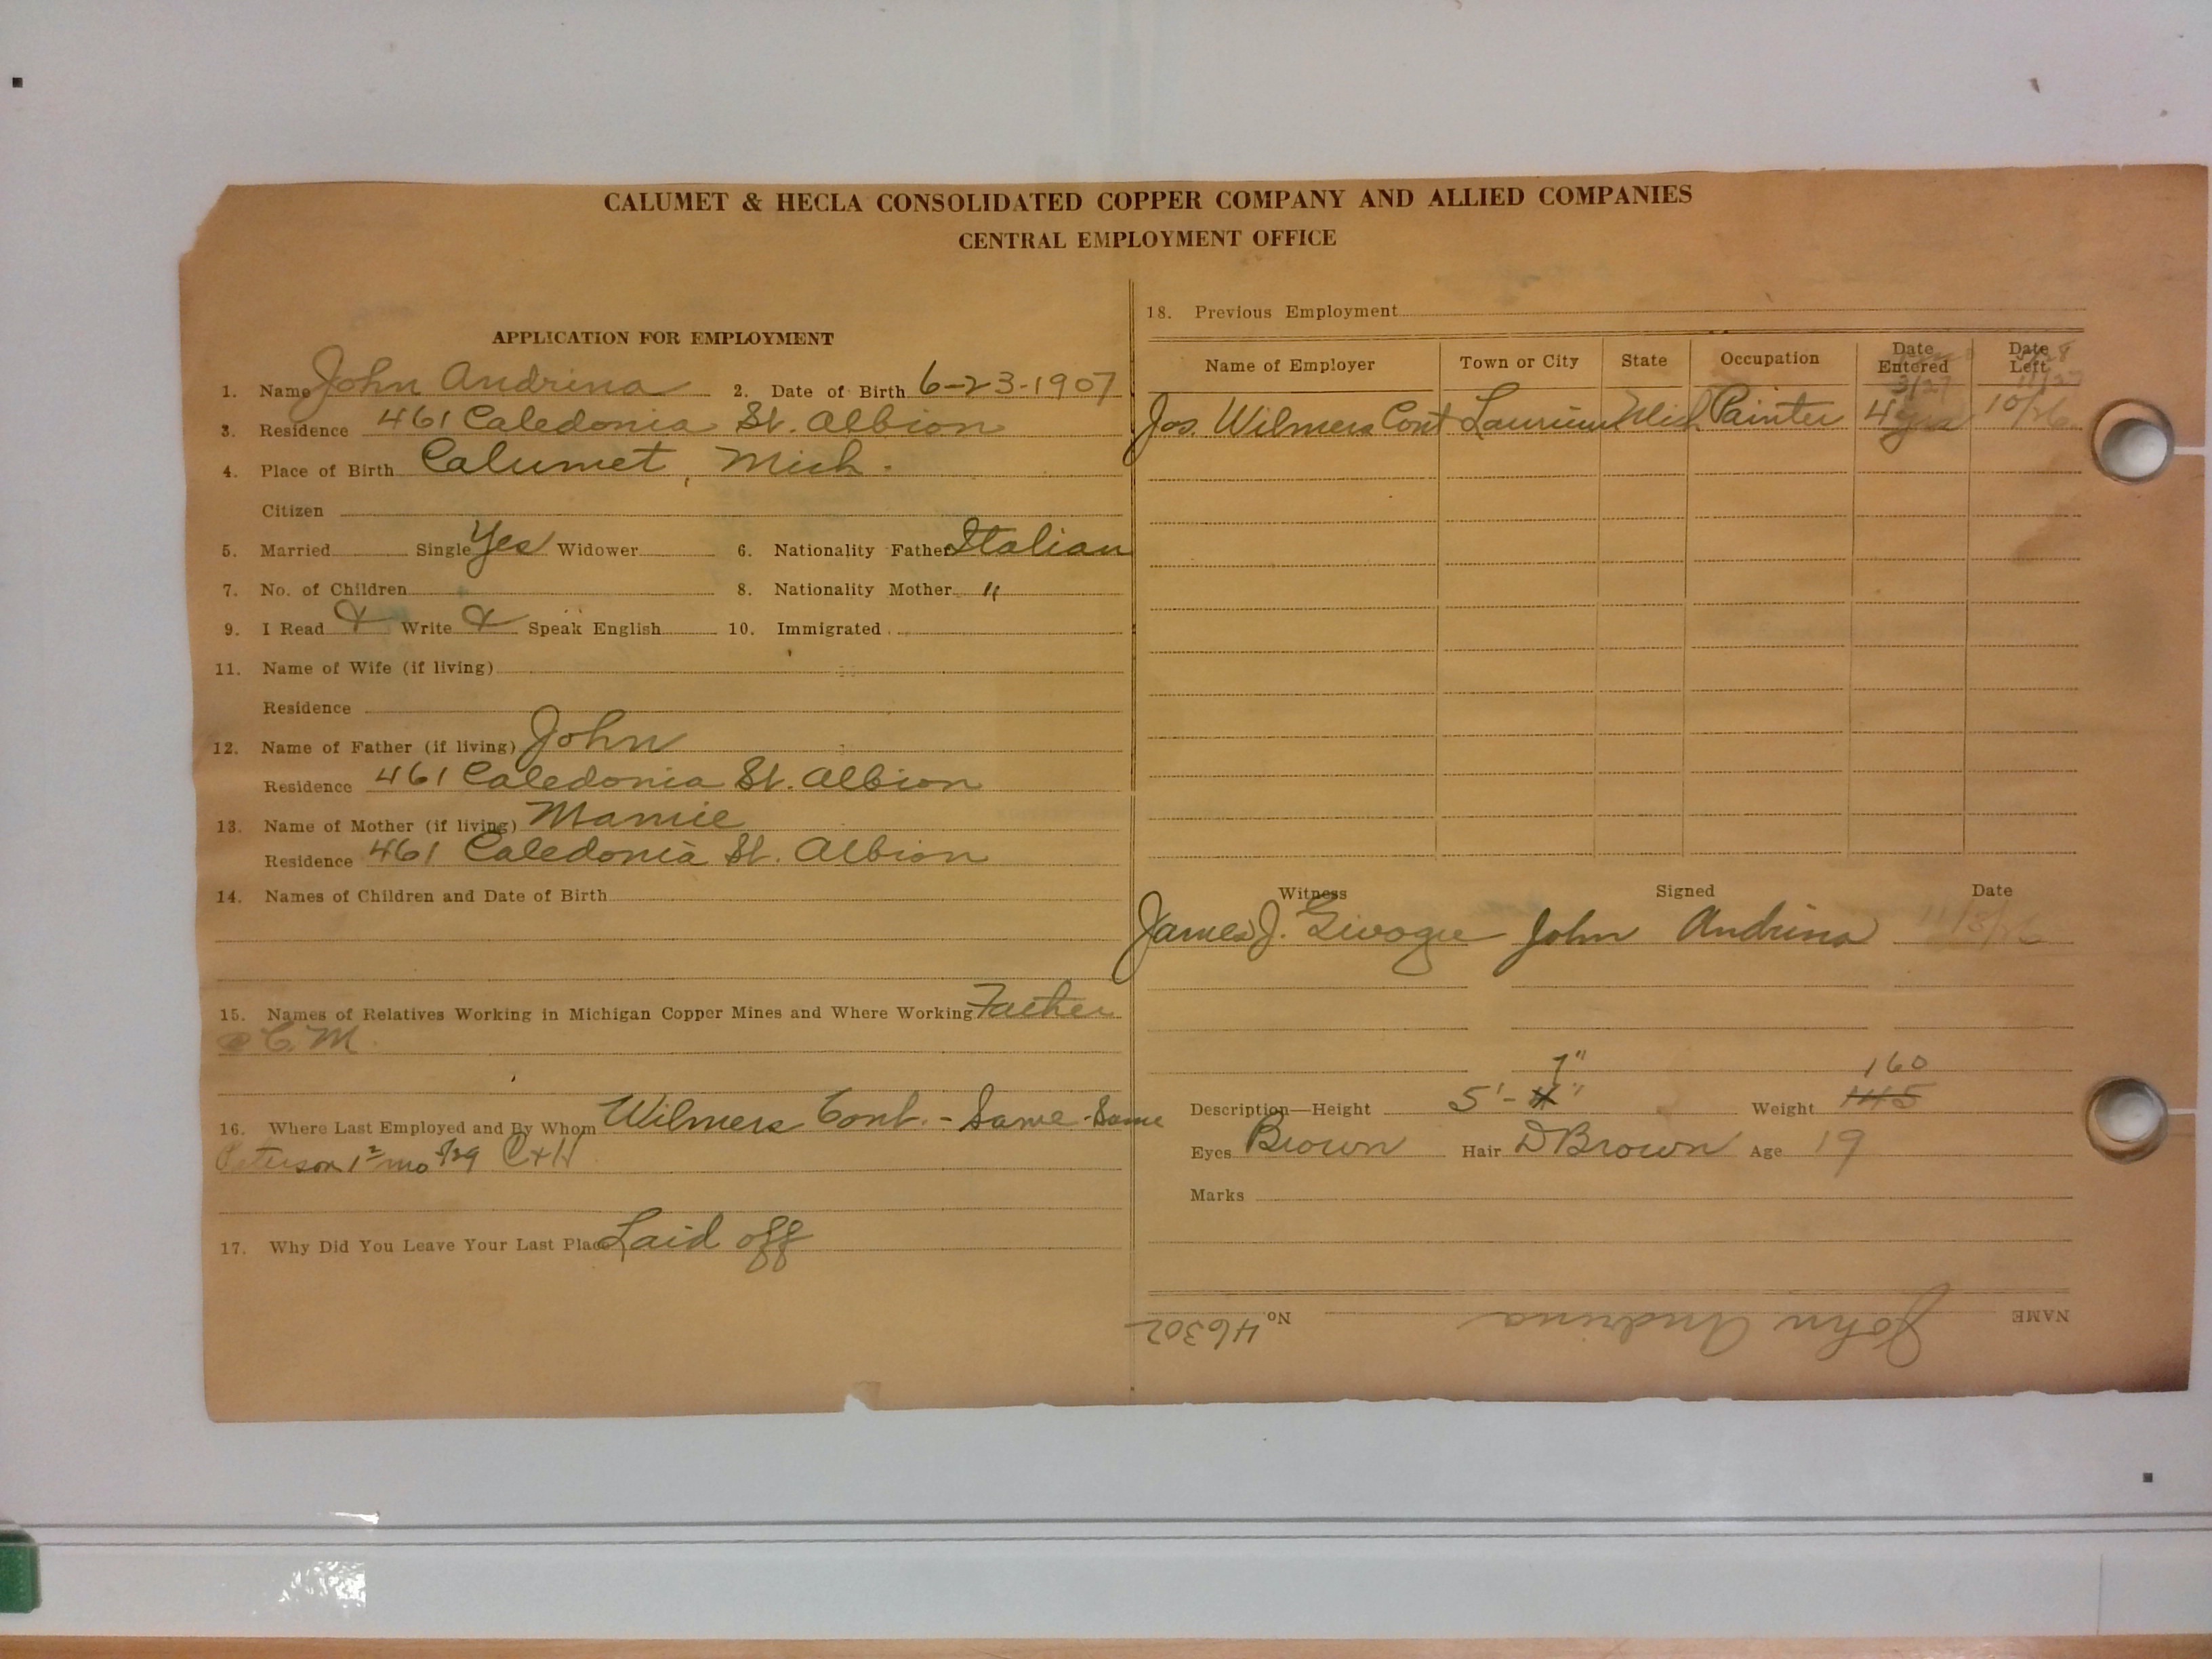 CALUMET & HECLA CONSOLIDATED COPPER COMPANY AND ALLIED COMPANIES
CENTRAL EMPLOYMENT OFFICE
APPLICATION FOR EMPLOYMENT
1. Name John Andrina 2. Date of Birth 6-23-1907
3. Residence 461 Caledonia St. Albion
4. Place of Birth Calumet, Mich.
Citizen
5. Married Single Yes Widower 6. Nationality Father Italian
7. No. of Children 8. Nationality Mother "
9. I Read Write Speak English 10. Immigrated
11. Name of Wife (if living)
Residence
12. Name of Father (if living) John
Residence 461 Caledonia St. Albion
13. Name of Mother (if living) Mamie
Residence 461 Caledonia St. Albion
14. Names of Children and Date of Birth
15. Names of Relatives Working in Michigan Copper Mines and Where Working Father
C. M.
16. Where Last Employed and By Whom Wilmers Cont. - Same - Same
Peterson mo C & H
17. Why Did You Leave Your Last Place Laid off
18. Previous Employment
Name of Employer Town or City State Occupation Date Entered Date Left
3/27 11/27
Jos. Wilmers Cont Laurium Mich Painter 4 yrs 10/26
Witness Signed Date
James J. John Andrina 11/8/26
7" 160
Description—Height 5'- " Weight 145
Eyes Brown Hair D Brown Age 19
Marks
NAME John Andrina No. 46302